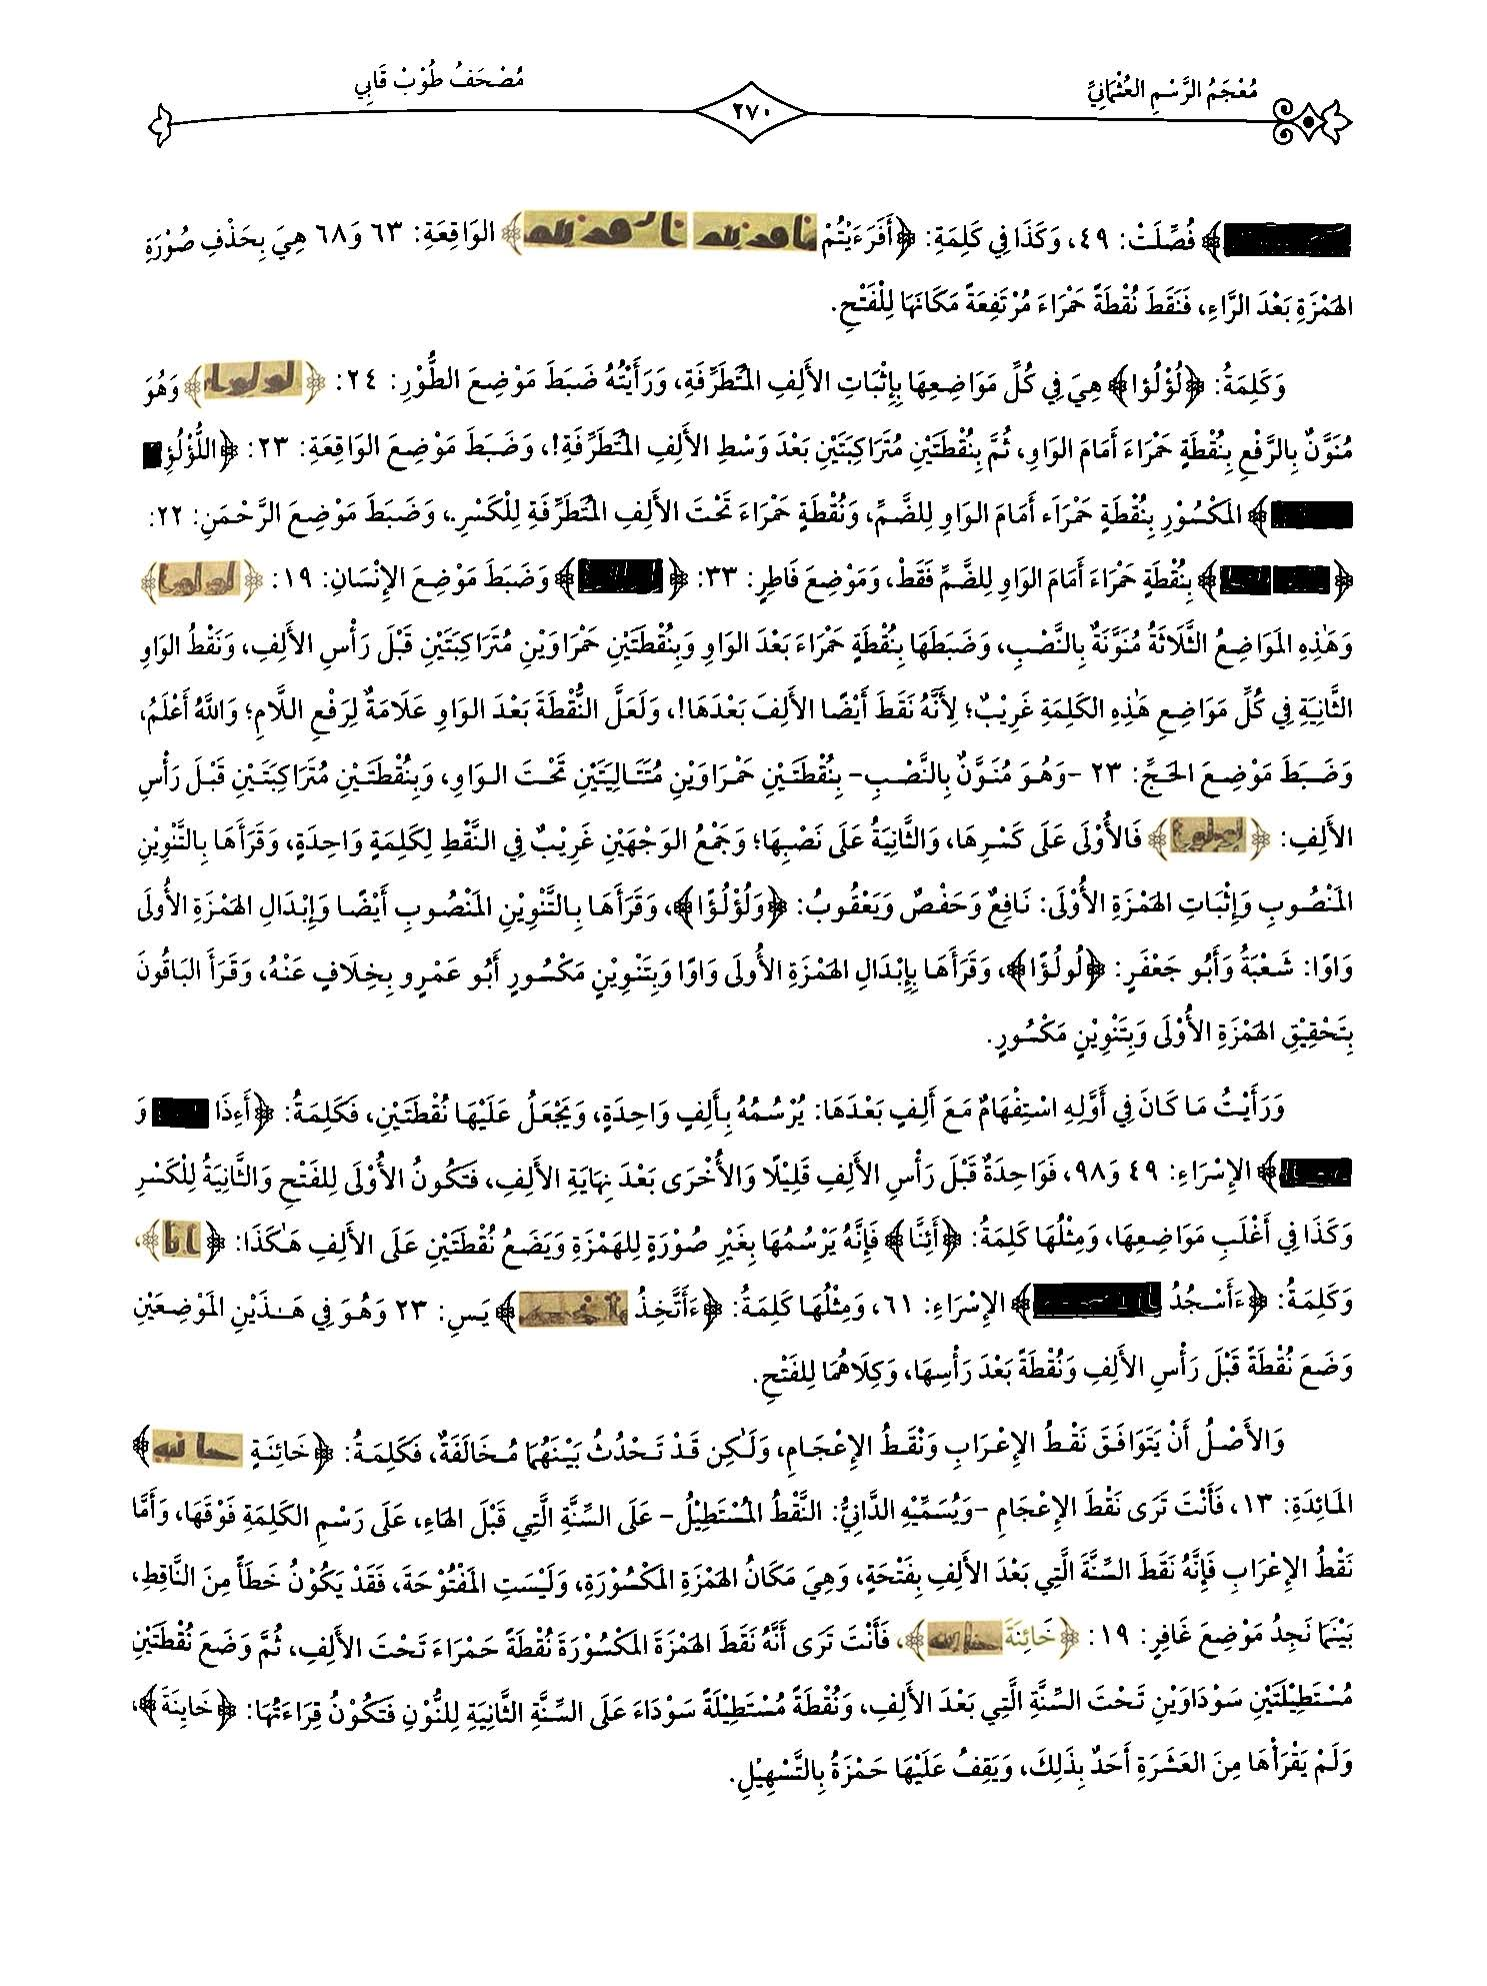 مُعْجَمُ الرَّسْمِ العُثْمَانِيِّ
٢٧٠
مُصْحَفُ طُوْبْ قَابِي
﴾ فُصِّلَتْ: ٤٩، وَكَذَا فِي كَلِمَةِ: ﴿أَفَرَءَيْتُمْ ﴾ الوَاقِعَةِ: ٦٣ وَ٦٨ هِيَ بِحَذْفِ صُوْرَةِ
الهَمْزَةِ بَعْدَ الرَّاءِ، فَنَقَطَ نُقْطَةً حَمْرَاءَ مُرْتَفِعَةً مَكَانَهَا لِلْفَتْحِ.
وَكَلِمَةُ: ﴿لُؤْلُؤا﴾ هِيَ فِي كُلِّ مَوَاضِعِهَا بِإِثْبَاتِ الأَلِفِ المُتَطَرِّفَةِ، وَرَأَيْتُهُ ضَبَطَ مَوْضِعَ الطُّوْرِ: ٢٤: ﴿ ﴾ وَهُوَ
مُنَوَّنٌ بِالرَّفْعِ بِنُقْطَةٍ حَمْرَاءَ أَمَامَ الوَاوِ، ثُمَّ بِنُقْطَتَيْنِ مُتَرَاكِبَتَيْنِ بَعْدَ وَسْطِ الأَلِفِ المُتَطَرِّفَةِ!، وَضَبَطَ مَوْضِعَ الوَاقِعَةِ: ٢٣: ﴿اللُّؤْلُؤِ
﴾ المَكْسُوْرِ بِنُقْطَةٍ حَمْرَاء أَمَامَ الوَاوِ لِلضَّمِّ، وَنُقْطَةٍ حَمْرَاءَ تَحْتَ الأَلِفِ المُتَطَرِّفَةِ لِلْكَسْرِ.، وَضَبَطَ مَوْضِعَ الرَّحْمَنِ: ٢٢:
﴿ ﴾ بِنُقْطَةٍ حَمْرَاءَ أَمَامَ الوَاوِ لِلضَّمِّ فَقَطْ، وَمَوْضِعَ فَاطِرٍ: ٣٣: ﴿ ﴾ وَضَبَطَ مَوْضِعَ الإِنْسَانِ: ١٩: ﴿ ﴾
وَهَٰذِهِ المَوَاضِعُ الثَّلَاثَةُ مُنَوَّنَةٌ بِالنَّصْبِ، وَضَبَطَهَا بِنُقْطَةٍ حَمْرَاءَ بَعْدَ الوَاوِ وَبِنُقْطَتَيْنِ حَمْرَاوَيْنِ مُتَرَاكِبَتَيْنِ قَبْلَ رَأْسِ الأَلِفِ، وَنَقْطُ الوَاوِ
الثَّانِيَةِ فِي كُلِّ مَوَاضِعِ هَٰذِهِ الكَلِمَةِ غَرِيْبٌ؛ لِأَنَّهُ نَقَطَ أَيْضًا الأَلِفَ بَعْدَهَا!، وَلَعَلَّ النُّقْطَةَ بَعْدَ الوَاوِ عَلَامَةٌ لِرَفْعِ اللَّامِ؛ وَاللهُ أَعْلَمُ،
وَضَبَطَ مَوْضِعَ الحَجِّ: ٢٣ -وَهُوَ مُنَوَّنٌ بِالنَّصْبِ- بِنُقْطَتَيْنِ حَمْرَاوَيْنِ مُتَتَالِيَتَيْنِ تَحْتَ الوَاوِ، وَبِنُقْطَتَيْنِ مُتَرَاكِبَتَيْنِ قَبْلَ رَأْسِ
الأَلِفِ: ﴿ ﴾ فَالأُوْلَى عَلَى كَسْرِهَا، وَالثَّانِيَةُ عَلَى نَصْبِهَا؛ وَجَمْعُ الوَجْهَيْنِ غَرِيْبٌ فِي النَّقْطِ لِكَلِمَةٍ وَاحِدَةٍ، وَقَرَأَهَا بِالتَّنْوِيْنِ
المَنْصُوبِ وَإِثْبَاتِ الهَمْزَةِ الأُوْلَى: نَافِعٌ وَحَفْصٌ وَيَعْقُوبُ: ﴿وَلُؤْلُؤًا﴾، وَقَرَأَهَا بِالتَّنْوِيْنِ المَنْصُوبِ أَيْضًا وَإِبْدَالِ الهَمْزَةِ الأُولَى
وَاوًا: شَعْبَةُ وَأَبُو جَعْفَرٍ: ﴿لُولُؤًا﴾، وَقَرَأَهَا بِإِبْدَالِ الهَمْزَةِ الأُولَى وَاوًا وَبِتَنْوِيْنٍ مَكْسُورٍ أَبُو عَمْرٍو بِخِلَافٍ عَنْهُ، وَقَرَأَ البَاقُونَ
بِتَحْقِيْقِ الهَمْزَةِ الأُوْلَى وَبِتَنْوِيْنٍ مَكْسُورٍ.
وَرَأَيْتُ مَا كَانَ فِي أَوَّلِهِ اسْتِفْهَامٌ مَعَ أَلِفٍ بَعْدَهَا: يُرْسُمُهُ بِأَلِفٍ وَاحِدَةٍ، وَيَجْعَلُ عَلَيْهَا نُقْطَتَيْنِ، فَكَلِمَةُ: ﴿أَءِذَا وَ
﴾ الإِسْرَاءِ: ٤٩ وَ٩٨، فَوَاحِدَةٌ قَبْلَ رَأْسِ الأَلِفِ قَلِيْلًا وَالأُخْرَى بَعْدَ نِهَايَةِ الأَلِفِ، فَتَكُونُ الأُوْلَى لِلفَتْحِ وَالثَّانِيَةُ لِلْكَسْرِ
وَكَذَا فِي أَغْلَبِ مَوَاضِعِهَا، وَمِثْلُهَا كَلِمَةُ: ﴿أَئِنَّا﴾ فَإِنَّهُ يَرْسُمُهَا بِغَيْرِ صُوْرَةٍ لِلهَمْزَةِ وَيَضَعُ نُقْطَتَيْنِ عَلَى الأَلِفِ هَكَذَا: ﴿ ﴾،
وَكَلِمَةُ: ﴿ءَأَسْجُدُ ﴾ الإِسْرَاءِ: ٦١، وَمِثْلُهَا كَلِمَةُ: ﴿ءَأَتَّخِذُ ﴾ يَسِ: ٢٣ وَهُوَ فِي هَٰذَيْنِ المَوْضِعَيْنِ
وَضَعَ نُقْطَةً قَبْلَ رَأْسِ الأَلِفِ وَنُقْطَةً بَعْدَ رَأْسِهَا، وَكِلَاهُمَا لِلفَتْحِ.
وَالأَصْلُ أَنْ يَتَوَافَقَ نَقْطُ الإِعْرَابِ وَنَقْطُ الإِعْجَامِ، وَلَٰكِن قَدْ تَحْدُثُ بَيْنَهُمَا مُخَالَفَةٌ، فَكَلِمَةُ: ﴿خَائِنَةٍ ﴾
المَائِدَةِ: ١٣، فَأَنْتَ تَرَى نَقْطَ الإِعْجَامِ -وَيُسَمِّيْهِ الدَّانِيُّ: النَّقْطُ المُسْتَطِيْلُ- عَلَى السِّنَّةِ الَّتِي قَبْلَ الهَاءِ، عَلَى رَسْمِ الكَلِمَةِ فَوْقَهَا، وَأَمَّا
نَقْطُ الإِعْرَابِ فَإِنَّهُ نَقَطَ السِّنَّةَ الَّتِي بَعْدَ الأَلِفِ بِفَتْحَةٍ، وَهِيَ مَكَانُ الهَمْزَةِ المَكْسُورَةِ، وَلَيْسَتِ المَفْتُوْحَةَ، فَقَدْ يَكُوْنُ خَطَأً مِنَ النَّاقِطِ،
بَيْنَمَا نَجِدُ مَوْضِعَ غَافِرٍ: ١٩: ﴿خَائِنَةَ ﴾، فَأَنْتَ تَرَى أَنَّهُ نَقَطَ الهَمْزَةَ المَكْسُوْرَةَ نُقْطَةً حَمْرَاءَ تَحْتَ الأَلِفِ، ثُمَّ وَضَعَ نُقْطَتَيْنِ
مُسْتَطِيْلَتَيْنِ سَوْدَاوَيْنِ تَحْتَ السِّنَّةِ الَّتِي بَعْدَ الأَلِفِ، وَنُقْطَةً مُسْتَطِيْلَةً سَوْدَاءَ عَلَى السِّنَّةِ الثَّانِيَةِ لِلنُّوْنِ فَتَكُوْنُ قِرَاءَتُهَا: ﴿خَايِنَةَ﴾،
وَلَمْ يَقْرَأْهَا مِنَ العَشَرَةِ أَحَدٌ بِذَلِكَ، وَيَقِفُ عَلَيْهَا حَمْزَةُ بِالتَّسْهِيْلِ.